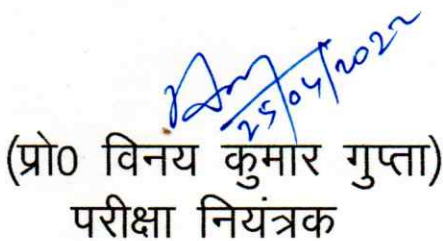 25/04/2022
(प्रो0 विनय कुमार गुप्ता)
परीक्षा नियंत्रक